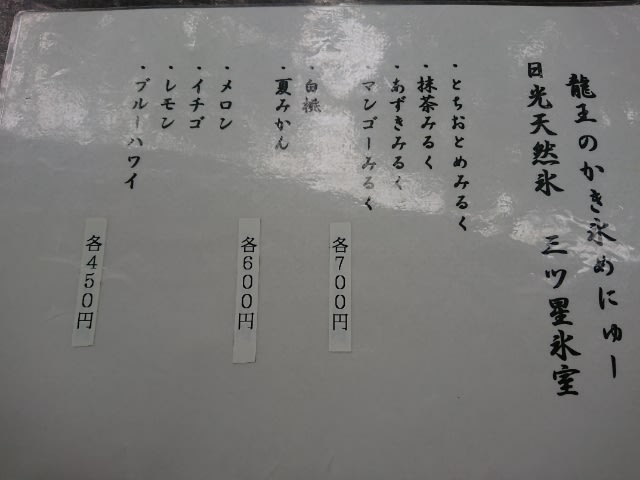 龍王のかき氷めにゅー
日光天然氷 三ツ星氷室
・とちおとめみるく
・抹茶みるく
・あずきみるく
・マンゴーみるく
各700円
・白桃
・夏みかん
各600円
・メロン
・イチゴ
・レモン
・ブルーハワイ
各450円